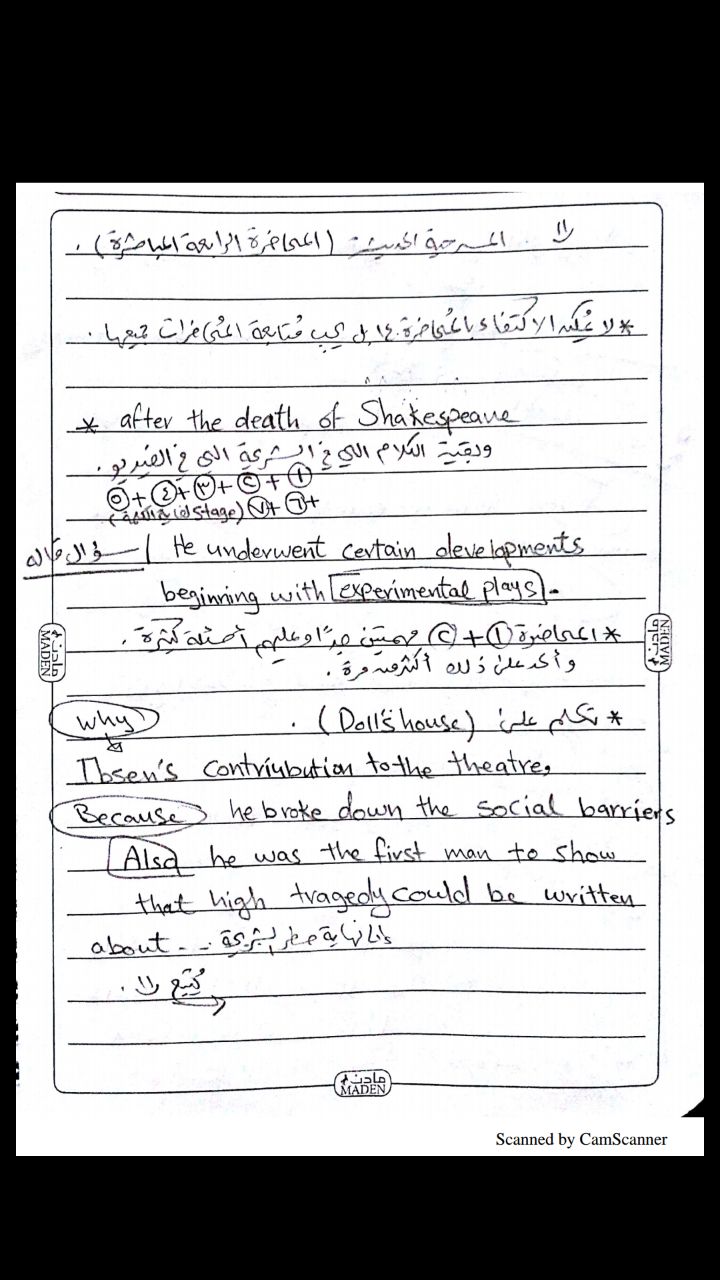 المسرحية الحديثة (المحاضرة الرابعة المباشرة) .
* لا يمكنه الاكتفاء بالمحاضرة ١٤ بل يجب متابعة المحاضرات جميعها .
* after the death of Shakespeare
وبقية الكلام اللي في الشريحة اللي في الفيديو .
① + ② + ③ + ④ + ⑤
+ ⑥ + ⑦ (stage)
سؤال مقاله / He underwent certain developments
beginning with experimental plays .
* المحاضرة ① + ② مهمتين جدًا وعليهم أسئلة كثيرة .
وأكد على ذلك أكثر من مرة .
* تكلم على (Doll's house) .
why
Ibsen's contriubution to the theatre,
Because he broke down the social barriers
Also he was the first man to show
that high tragedy could be written
about -- الشريحة
يُتبع .
مادن
MADEN
مادن
MADEN
مادن
MADEN
Scanned by CamScanner